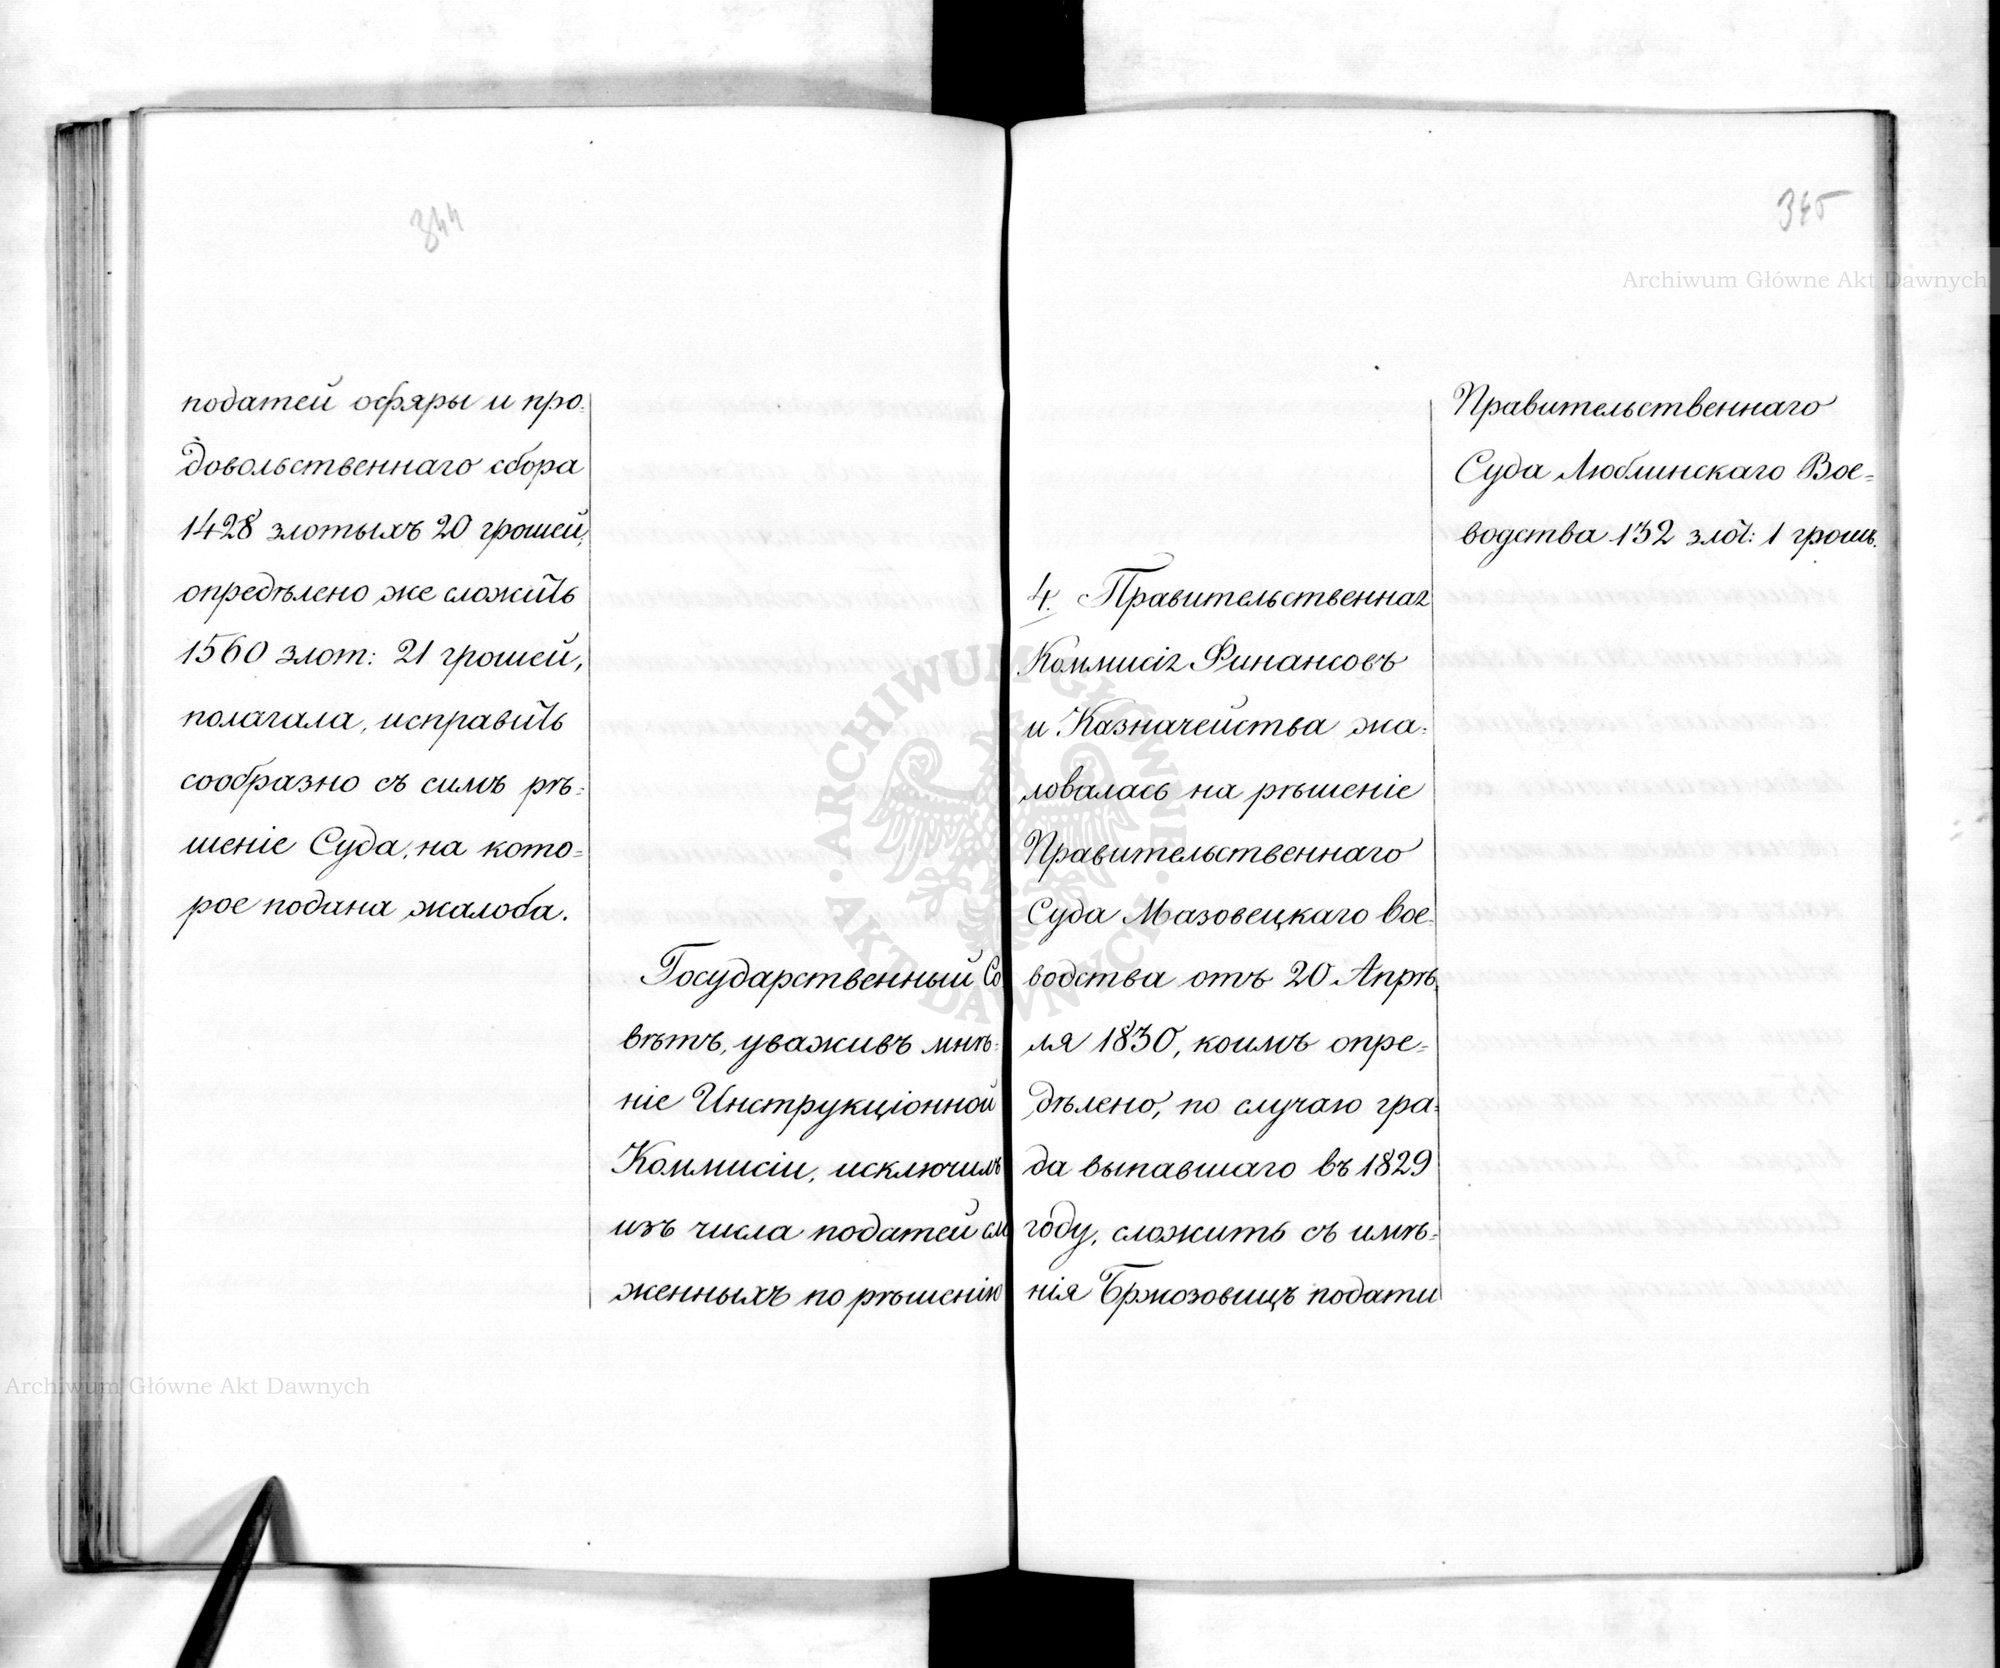 344
податей офяры и про-
довольственнаго сбора
1428 злотыхъ 20 грошей,
опредѣлено же сложить
1560 злот: 21 грошей,
полагала, исправить
сообразно съ симъ рѣ-
шеніе Суда, на кото-
рое подана жалоба.
Государственный Со
вѣтъ, уваживъ мнѣ-
ніе Инструкціонной
Коммисіи, исключилъ
изъ числа податей сло
женныхъ по рѣшенію
345
Правительственнаго
Суда Люблинскаго Вое-
водства 132 злот: 1 грошъ.
4. Правительственная
Коммисія Финансовъ
и Казначейства жа-
ловалась на рѣшеніе
Правительственнаго
Суда Мазовецкаго Вое-
водства отъ 20 Апрѣ-
ля 1830, коимъ опре-
дѣлено, по случаю гра-
да выпавшаго въ 1829
году, сложить съ имѣ-
нія Бржозовицъ подати
Archiwum Główne Akt Dawnych
Archiwum Główne Akt Dawnych
ARCHIWUM GŁÓWNE
AKT DAWNYCH